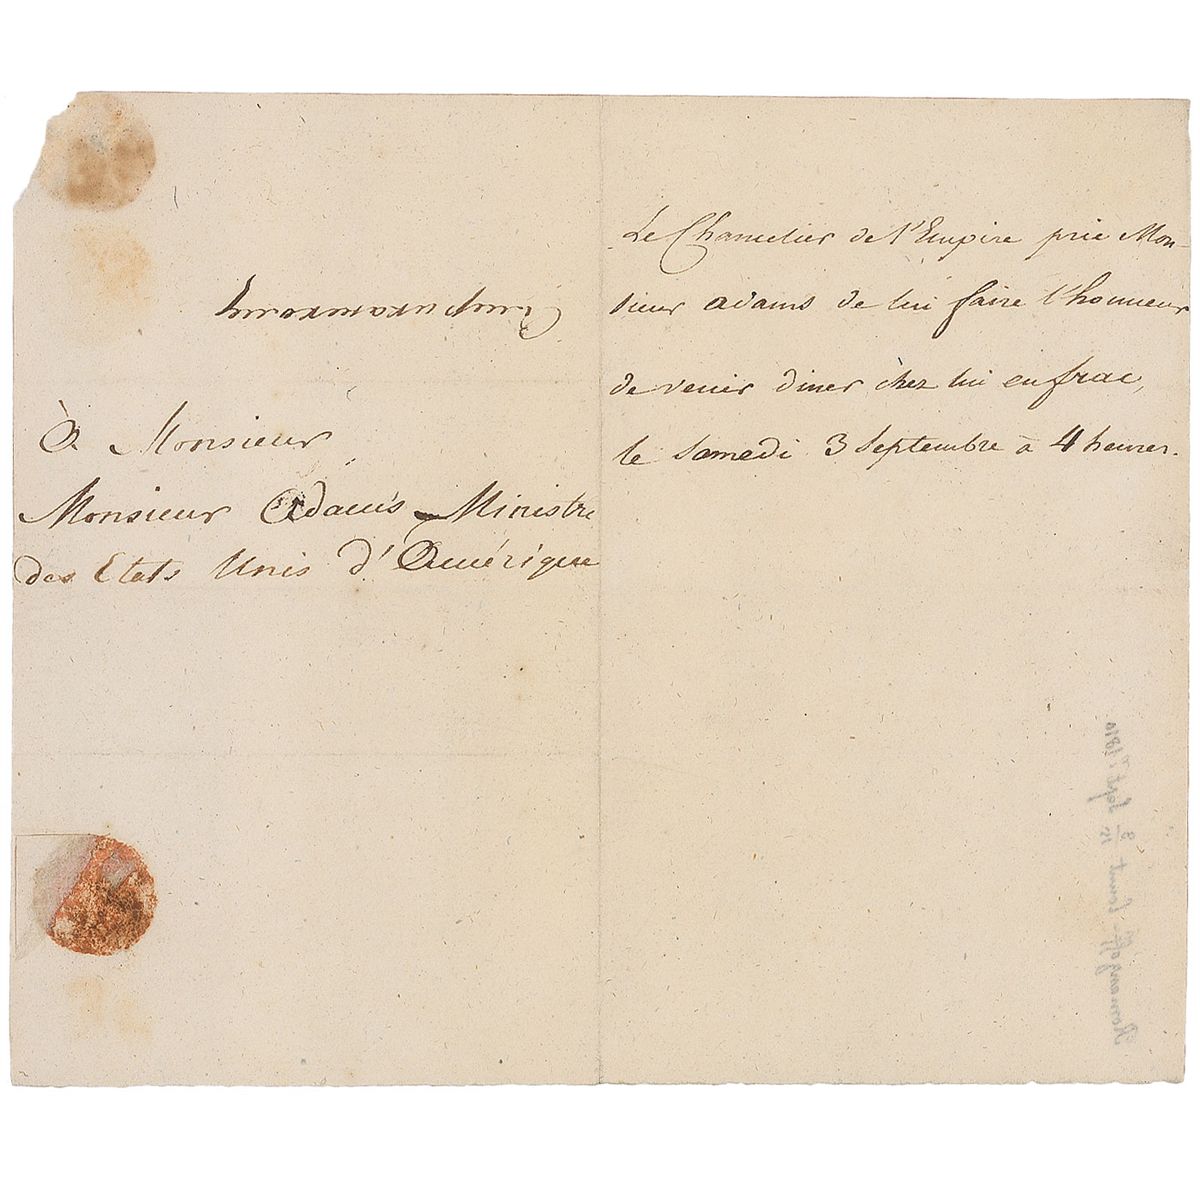 À Monsieur
Monsieur Adams Ministre
des Etats Unis d'Amérique
Le Chancelier de l'Empire prie Mon-
sieur Adams de lui faire l'honneur
de venir diner chez lui en frac,
le Samedi 3 Septembre à 4 heures.
Romanzoff Count 11 8 Septr: 1810